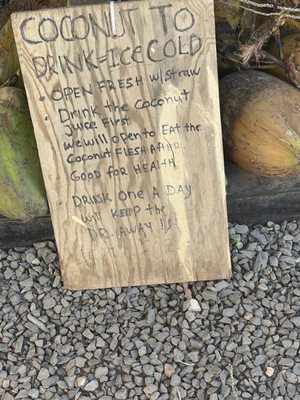 COCONUT TO
DRINK=ICE COLD
• OPEN FRESH W/STRAW
• DRINK the COCONUT
JUICE FIRST
WE will OPEN to EAT the
COCONUT FLESH AFTER
GOOD for HEALTH
DRINK ONE A DAY
Will KEEP the
DR. AWAY !!!